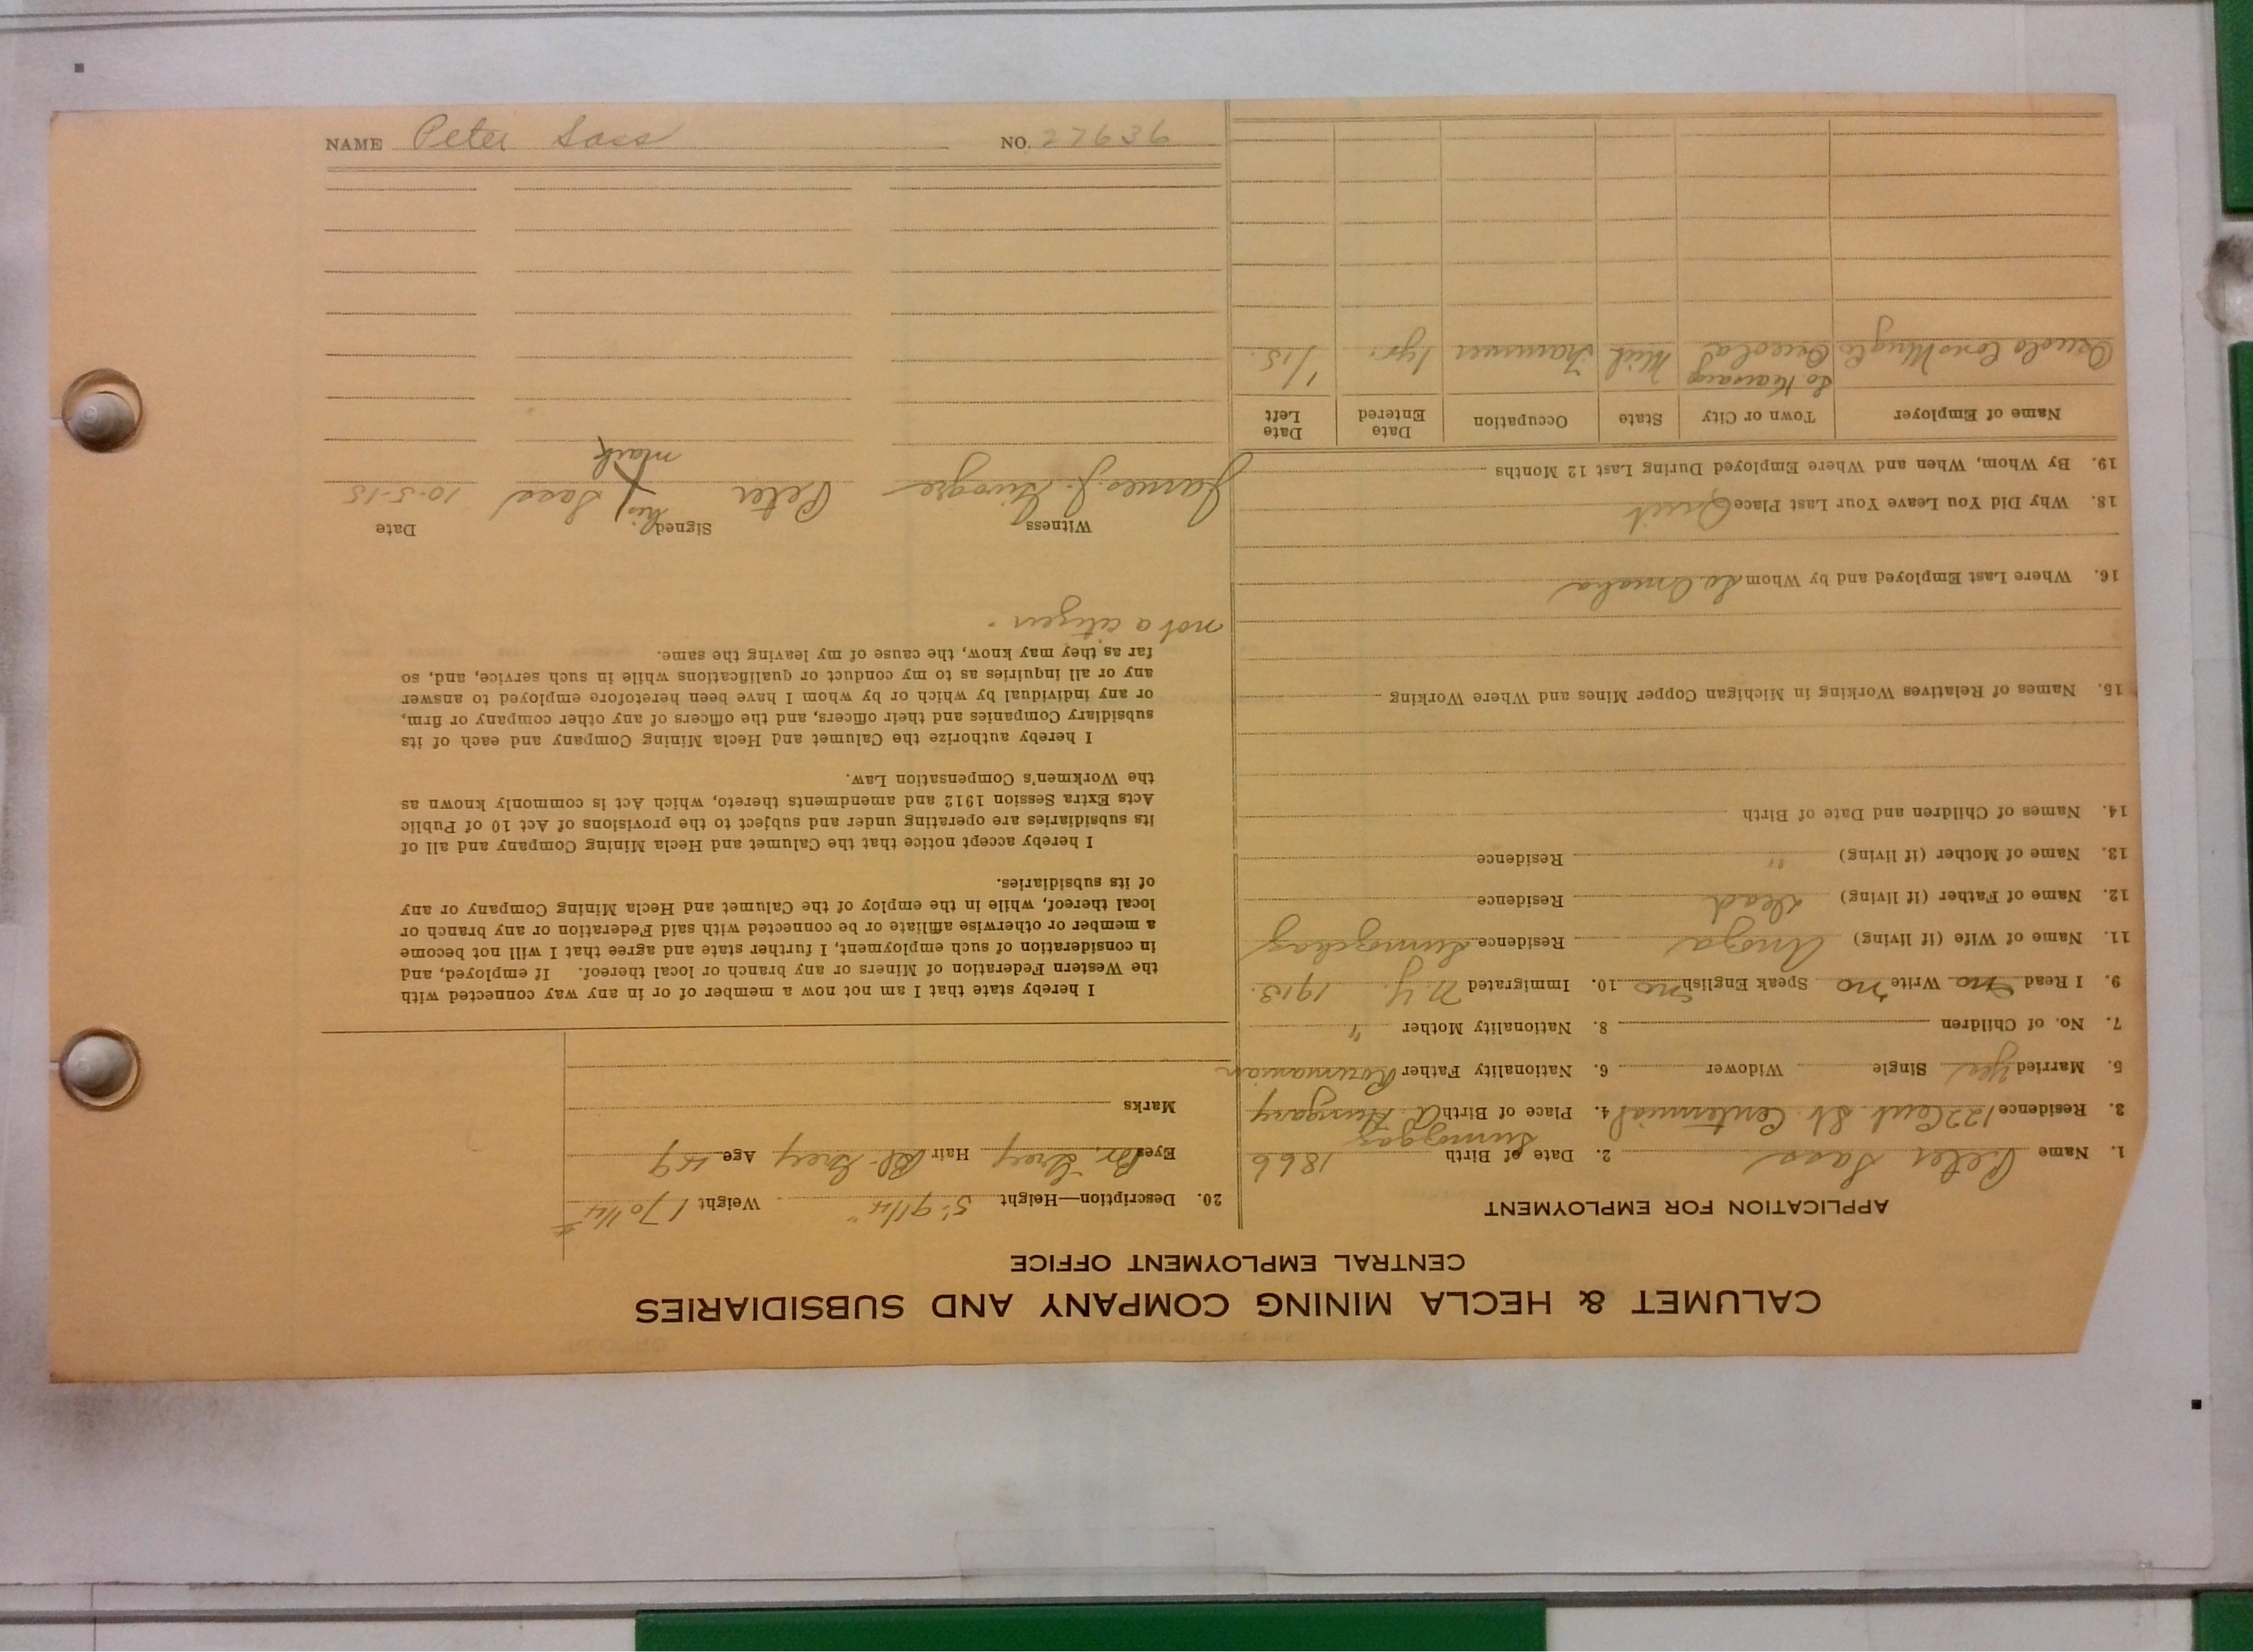 CALUMET & HECLA MINING COMPANY AND SUBSIDIARIES
CENTRAL EMPLOYMENT OFFICE
APPLICATION FOR EMPLOYMENT
1. Name Peter Sass 2. Date of Birth 1866
3. Residence 122 Cent. St. Centennial 4. Place of Birth Hungary
5. Married Yes Single Widower 6. Nationality Father Roumanian
7. No. of Children 8. Nationality Mother "
9. I Read no Write no Speak English no 10. Immigrated N.Y. 1913.
11. Name of Wife (if living) Residence
12. Name of Father (if living) Dead Residence
13. Name of Mother (if living) " Residence
14. Names of Children and Date of Birth
15. Names of Relatives Working in Michigan Copper Mines and Where Working
16. Where Last Employed and by Whom So Omaha
18. Why Did You Leave Your Last Place Quit
19. By Whom, When and Where Employed During Last 12 Months
Name of Employer Town or City State Occupation Date Entered Date Left
So Kearsarge
Osceola Cons Mng Co Osceola Mich Trammer 1 yr. 1/15.
20. Description—Height 5'-9 1/4" Weight 170 1/4 #
Eyes Br. Grey Hair Bl-Grey Age 49
Marks
I hereby state that I am not now a member of or in any way connected with
the Western Federation of Miners or any branch or local thereof. If employed, and
in consideration of such employment, I further state and agree that I will not become
a member or otherwise affiliate or be connected with said Federation or any branch or
local thereof, while in the employ of the Calumet and Hecla Mining Company or any
of its subsidiaries.
I hereby accept notice that the Calumet and Hecla Mining Company and all of
its subsidiaries are operating under and subject to the provisions of Act 10 of Public
Acts Extra Session 1912 and amendments thereto, which Act is commonly known as
the Workmen's Compensation Law.
I hereby authorize the Calumet and Hecla Mining Company and each of its
subsidiary Companies and their officers, and the officers of any other company or firm,
or any individual by which or by whom I have been heretofore employed to answer
any or all inquiries as to my conduct or qualifications while in such service, and, so
far as they may know, the cause of my leaving the same.
not a citizen.
Witness Signed Date
his
James J. Peter X Sass 10-5-15
mark
NAME Peter Sass NO. 27636